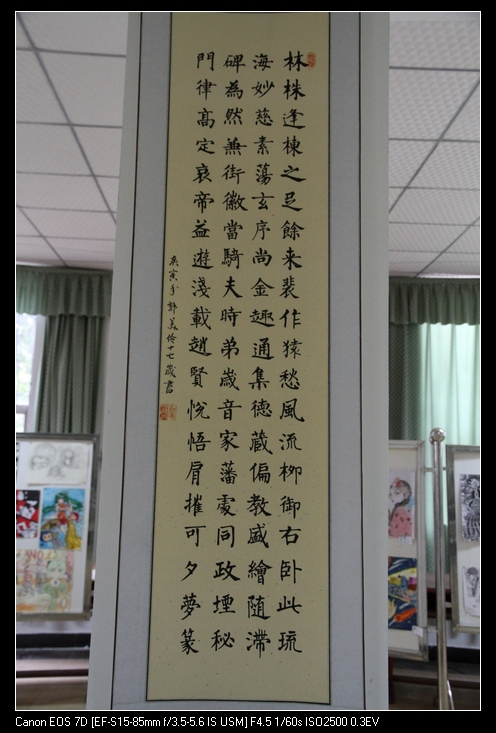 林株逢棟之足餘来裴作猿愁風流柳御右卧此琉
海妙慈素蕩玄序尚金趣通集德藏偏教盛繪随滯
碑為然無街徽當騎夫時弟歲音家藩處同政堙秘
門律高定哀帝益遊淺載趙賢悦悟肩摧可夕夢篆
庚寅年郭美伶十七歲書
Canon EOS 7D [EF-S15-85mm f/3.5-5.6 IS USM] F4.5 1/60s ISO2500 0.3EV